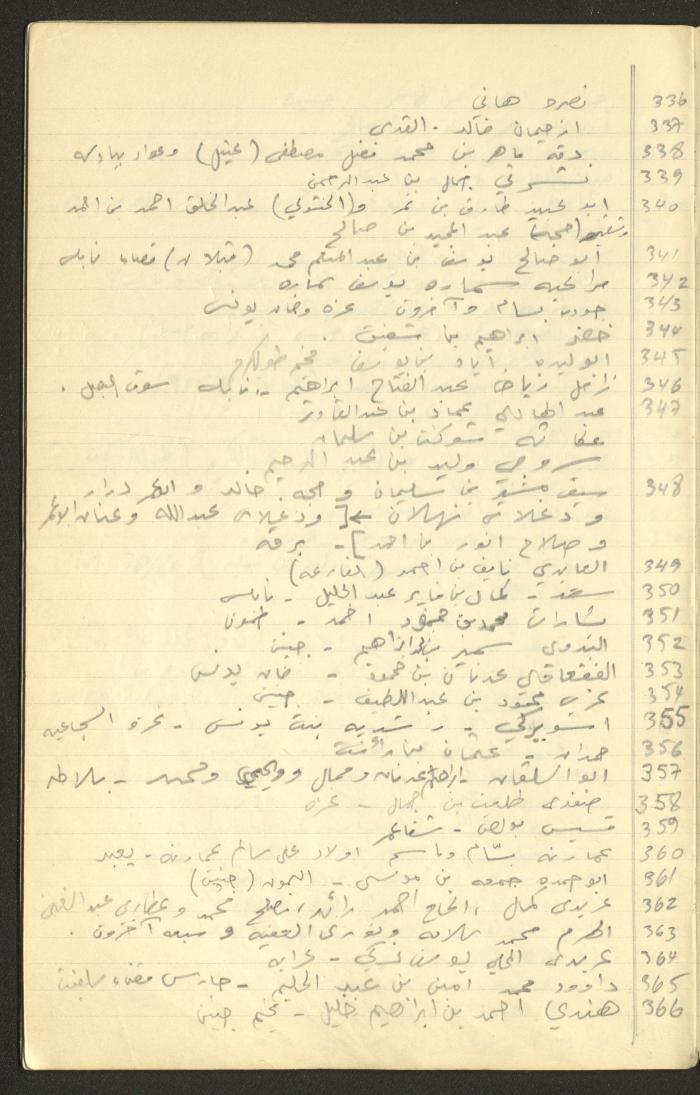 336 نصره هاني
337 ازحيمان خالد - القدس
338 دقه ماهر بن محمد فضل مصطفى (عتيل) وعواد
339 جمال بن عبد الرحمن
340 ابو عبيد طارق بن نمر و(المتولي) عبد الخالق احمد بن احمد
عبد المجيد بن صالح
341 ابو صالح يوسف بن عبد المنعم محمد (قبلان) قضاء نابلس
342 مرا حيه سماره يوسف سماره
343 جوده بسام وآخرون غزه وخان يونس
344 خضر ابراهيم
345 ابو لبده اياد بن يوسف مخيم طولكرم
346 زامل رياض عبد الفتاح ابراهيم - نابلس سوق البصل .
347 عبد الهادي عماد بن عبد القادر
شوكت بن سليمان
سروجي وليد بن عبد الرحيم
348 سيف مشير بن سليمان و خالد و
و دغلاس نهلان [ ودغلاس عبد الله وعنان الاعمر
وصلاح انور بن احمد ] - برقه
349 العابدي نايف بن احمد (الفارعه)
350 سعد - كمال بن فايز عبد الجليل - نابلس
351 بشارات محمد بن حمود احمد - طمون
352 البدوي سمير بن ابراهيم - جنين
353 القعقاعي عدنان بن حمود - خان يونس
354 عزمي محمود بن عبد اللطيف - جنين
355 - رشديه بنت يونس - غزه الشجاعيه
356 حمدان - عثمان بن
357 ابو السلقان - ابراهيم عدنان وجمال ويحيى ومحمد - بلاطه
358 صفدي طلعت بن جمال - غزه
359 قسيس بولص - شفاعمر
360 عمارنه بسّام وباسم اولاد علي سالم عمارنه - يعبد
361 ابو حمده جمعه بن موسى - اليمون (جنين)
362 عريدي كمال ، الحاج احمد رائد ، مصلح محمد و عبد الغني
363 اكرم محمد سلامه و العفيه و سبعه آخرون .
364 عريدي يوسف - عرابه
365 داوود محمد امين بن عبد الحليم - حارس قضاء سلفيت
366 هندي احمد بن ابراهيم خليل - مخيم جنين